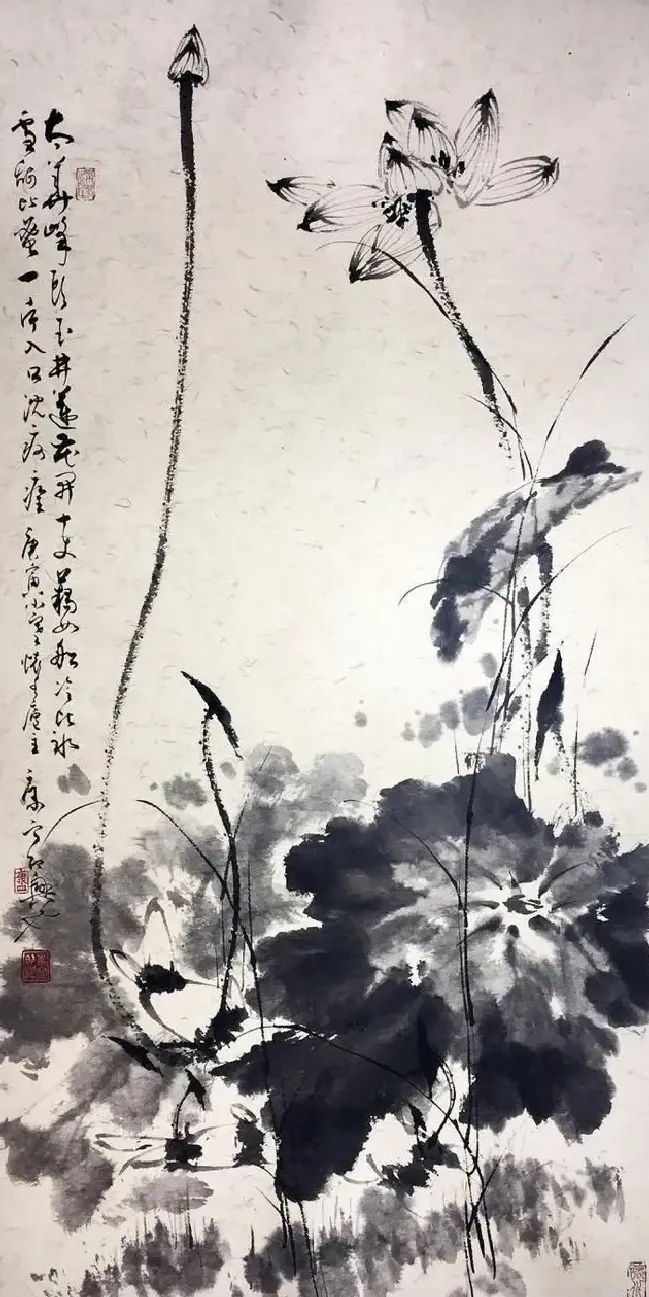 太華峰頭玉井蓮花開十丈藕如船冷比冰
雪甜比蜜一片入口沈疴痊 庚寅小雪 廬主 康寧